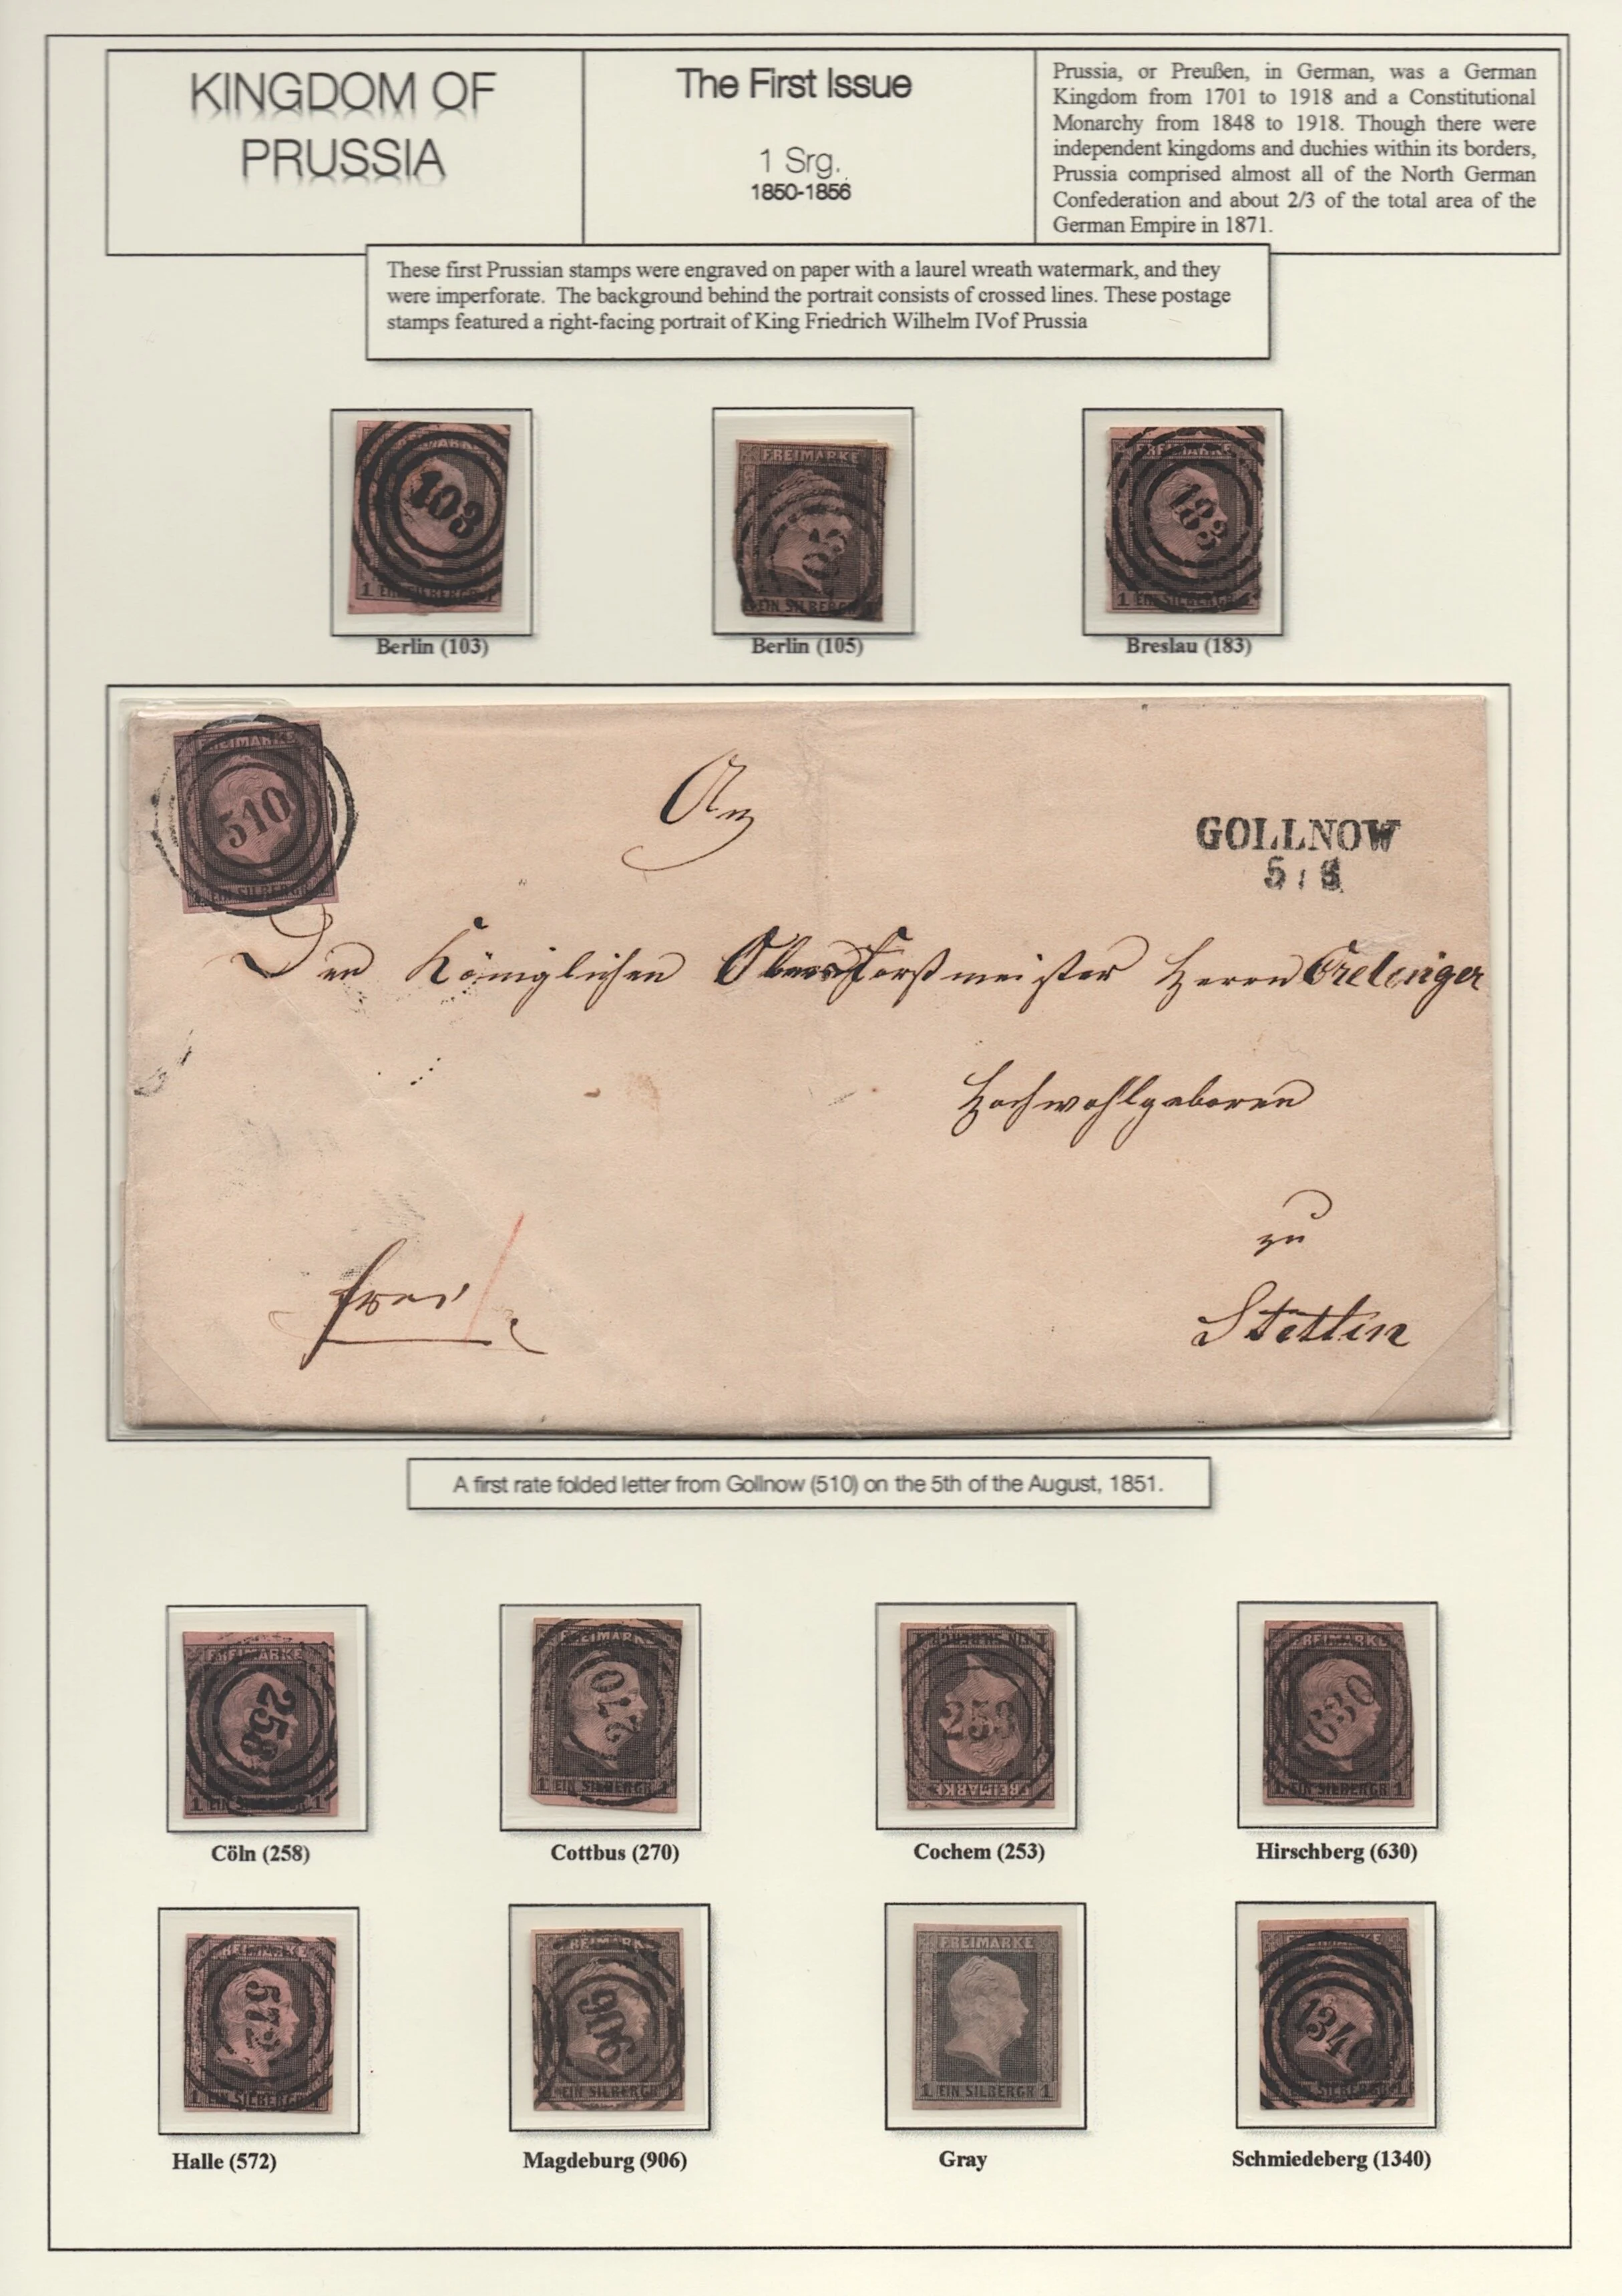 KINGDOM OF
PRUSSIA
The First Issue
1 Srg.
1850-1856
Prussia, or Preußen, in German, was a German
Kingdom from 1701 to 1918 and a Constitutional
Monarchy from 1848 to 1918. Though there were
independent kingdoms and duchies within its borders,
Prussia comprised almost all of the North German
Confederation and about 2/3 of the total area of the
German Empire in 1871.
These first Prussian stamps were engraved on paper with a laurel wreath watermark, and they
were imperforate. The background behind the portrait consists of crossed lines. These postage
stamps featured a right-facing portrait of King Friedrich Wilhelm IVof Prussia
103
1 EIN SILBERGR 1
FREIMARKE
EIN SILBERGR
FREIMARKE
183
1 EIN SILBERGR 1
Berlin (103)
Berlin (105)
Breslau (183)
FREIMARKE
510
EIN SILBERGR
An
GOLLNOW
5 / 8
Den Königlichen Oberforstmeister Herrn
Hochwohlgeboren
zu
Stettin
frei
A first rate folded letter from Gollnow (510) on the 5th of the August, 1851.
FREIMARKE
258
1 EIN SILBERGR 1
FREIMARKE
270
1 EIN SILBERGR 1
1 EIN SILBERGR 1
253
FREIMARKE
FREIMARKE
630
1 EIN SILBERGR 1
Cöln (258)
Cottbus (270)
Cochem (253)
Hirschberg (630)
FREIMARKE
572
1 EIN SILBERGR 1
FREIMARKE
906
EIN SILBERGR 1
FREIMARKE
1 EIN SILBERGR 1
FREIMARKE
1340
EIN SILBERGR 1
Halle (572)
Magdeburg (906)
Gray
Schmiedeberg (1340)